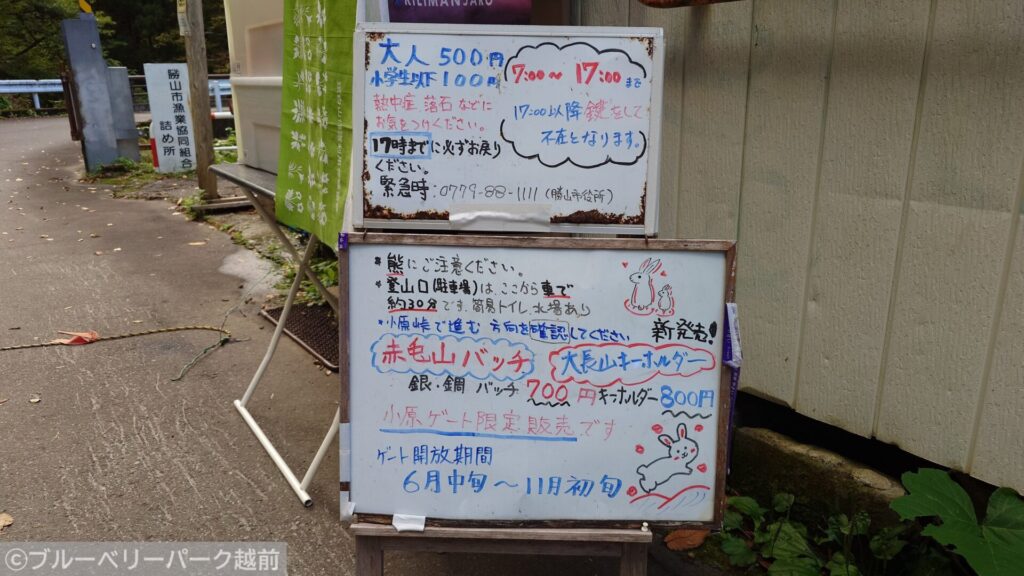 KILIMANJARO
大人500円
小学生以下100円
熱中症 落石などに
お気をつけください。
17時までに必ずお戻り
ください。
緊急時:0779-88-1111(勝山市役所)
7:00~17:00まで
17:00以降鍵をして
不在となります。
*熊にご注意ください。
*登山口(駐車場)は、ここから車で
約30分です。簡易トイレ、水場あり
*小原峠で進む 方向を確認してください
新発売!
赤毛山バッチ
大長山キーホルダー
銀・銅 バッチ 700円 キーホルダー 800円
小原ゲート限定販売です
ゲート開放期間
6月中旬~11月初旬
勝山市漁業協同組合
詰め所
©ブルーベリーパーク越前